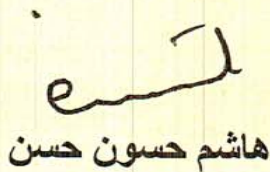 هاشم حسون حسن